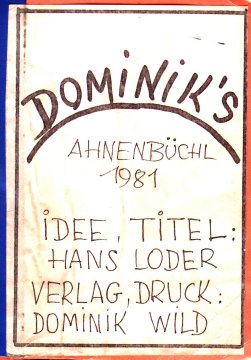 DOMiNiK'S
AHNENBÜCHL
1981
iDEE, TiTEL:
HANS LODER
VERLAG, DRUCK:
DOMiNiK WILD